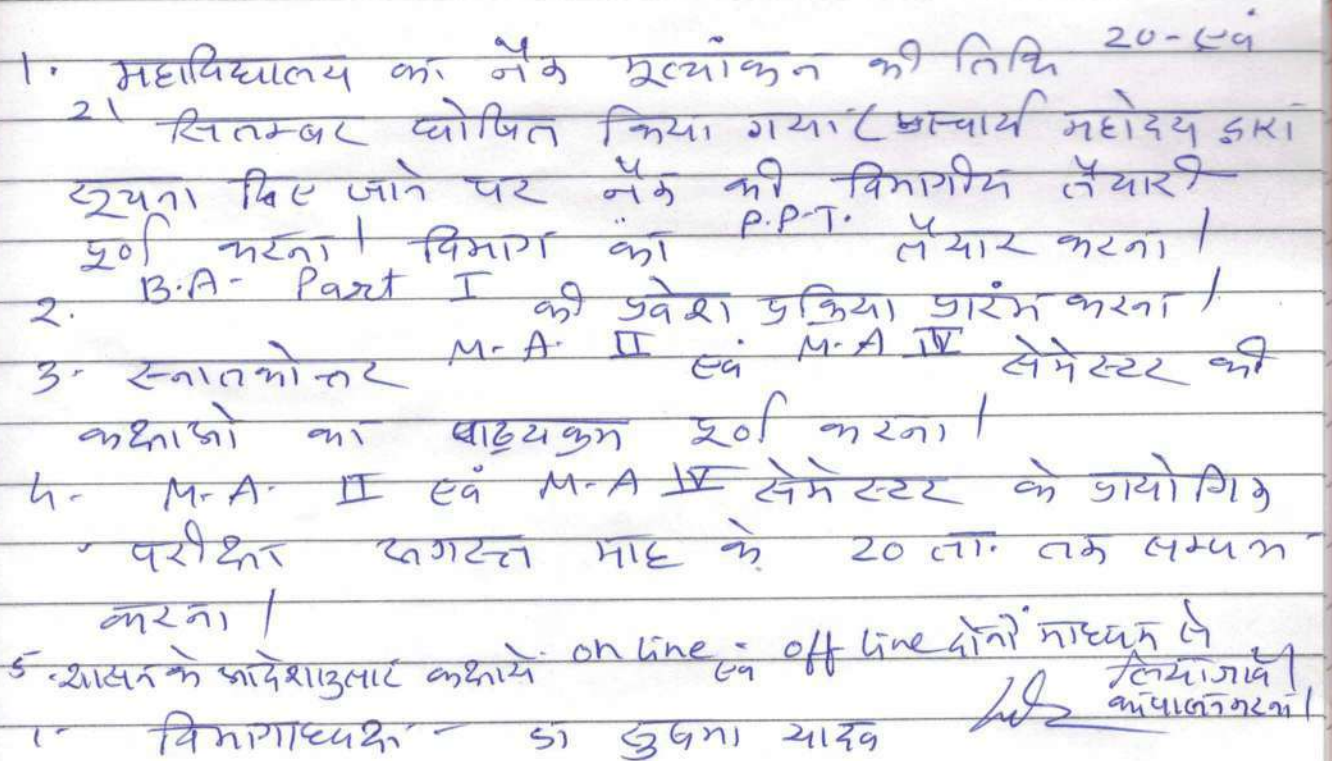 1. महाविद्यालय का नैक मूल्यांकन की तिथि 20-एवं
21 सितम्बर घोषित किया गया। प्राचार्य महोदय द्वारा
सूचना दिए जाने पर नैक की विभागीय तैयारी
पूर्ण करना। विभाग का P.P.T. तैयार करना।
2. B.A- Part I की प्रवेश प्रक्रिया प्रारंभ करना।
3. स्नातकोत्तर M.A. II एवं M.A IV सेमेस्टर की
कक्षाओं का पाठ्यक्रम पूर्ण करना।
4. M.A. II एवं M.A IV सेमेस्टर के प्रायोगिक
परीक्षा अगस्त माह के 20 ता. तक सम्पन्न
करना।
5. शासन के आदेशानुसार कक्षायें on line एवं off line दोनों माध्यम से
लिया जावें।
का पालन करना।
1- विभागाध्यक्ष - डा सुषमा यादव